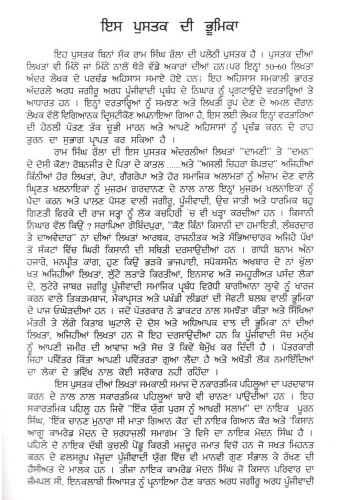 ਇਸ ਪੁਸਤਕ ਦੀ ਭੂਮਿਕਾ
ਇਹ ਪੁਸਤਕ ਬਿਨਾਂ ਸ਼ੱਕ ਰਾਮ ਸਿੰਘ ਰੱਲਾ ਦੀ ਪਲੇਠੀ ਪੁਸਤਕ ਹੈ । ਪੁਸਤਕ ਦੀਆਂ
ਲਿਖਤਾਂ ਵੀ ਮਿੰਨੇ ਜਾਂ ਮਿੰਨੇ ਨਾਲੋਂ ਥੋੜੇ ਵੱਡੇ ਅਕਾਰਾਂ ਦੀਆਂ ਹਨ।ਪਰ ਇਨ੍ਹਾਂ 50-60 ਲਿਖਤਾਂ
ਅੰਦਰ ਲੇਖਕ ਦੇ ਪਰਚੰਡ ਅਹਿਸਾਸ ਸਮਾਏ ਹੋਏ ਹਨ। ਇਹ ਅਹਿਸਾਸ ਸਮਕਾਲੀ ਭਾਰਤ
ਅੰਦਰਲੇ ਅਰਧ ਜਗੀਰੂ ਅਰਧ ਪੂੰਜੀਵਾਦੀ ਪ੍ਰਬੰਧ ਦੇ ਨਿਘਾਰ ਨੂੰ ਪ੍ਰਗਟਾਉਂਦੇ ਵਰਤਾਰਿਆਂ ਤੇ
ਆਧਾਰਤ ਹਨ । ਇਨ੍ਹਾਂ ਵਰਤਾਰ੍ਹਿਆਂ ਨੂੰ ਸਮਝਣ ਅਤੇ ਲਿਖਤੀ ਰੂਪ ਦੇਣ ਦੇ ਅਮਲ ਦੌਰਾਨ
ਲੇਖਕ ਵੱਲੋਂ ਵਿਗਿਆਨਕ ਦ੍ਰਿਸ਼ਟੀਕੋਣ ਅਪਨਾਇਆ ਗਿਆ ਹੈ, ਇਸ ਲਈ ਲੇਖਕ ਇਨ੍ਹਾਂ ਵਰਤਾਰਿਆਂ
ਦੀ ਹੇਠਲੀ ਪੱਤਣ ਤੱਕ ਚੁੱਭੀ ਮਾਰਨ ਅਤੇ ਆਪਣੇ ਅਹਿਸਾਸਾਂ ਨੂੰ ਪ੍ਰਚੰਡ ਕਰਨ ਦੇ ਰਾਹ
ਤੁਰਨ ਦਾ ਸੁਭਾਗ ਪ੍ਰਾਪਤ ਕਰ ਸਕਿਆ ਹੈ ।
ਰਾਮ ਸਿੰਘ ਰੱਲਾ ਦੀ ਇਸ ਪੁਸਤਕ ਅੰਦਰਲੀਆਂ ਲਿਖਤਾਂ "ਦਾਮਣੀ" ਤੇ "ਦਮਨ"
ਦੇ ਦੋਸ਼ੀ ਕੌਣ? ਰੋਬਨਜੀਤ ਦੇ ਪਿਤਾ ਦੇ ਕਾਤਲ .....ਅਤੇ "ਅਸਲੀ ਚਿਹਰਾ ਬੇਪੜਦ" ਅਜਿਹੀਆਂ
ਕਿੰਨੀਆਂ ਹੋਰ ਲਿਖਤਾਂ, ਰੇਪਾਂ, ਗੈਂਗਰੇਪਾਂ ਅਤੇ ਹੋਰ ਸਮਾਜਿਕ ਅਲਾਮਤਾਂ ਨੂੰ ਅੰਜਾਮ ਦੇਣ ਵਾਲੇ
ਘ੍ਰਿਣਤ ਖਲਨਾਇਕਾਂ ਨੂੰ ਮੁਜਰਮ ਗਰਦਾਨਣ ਦੇ ਨਾਲ ਨਾਲ ਇਨ੍ਹਾਂ ਮੁਜਰਮ ਖਲਨਾਇਕਾਂ ਨੂੰ
ਪੈਦਾ ਕਰਨ ਅਤੇ ਪਾਲਣ ਪੋਸਣ ਵਾਲੀ ਜਗੀਰੂ, ਪੂੰਜੀਵਾਦੀ, ਉਚ ਜਾਤੀ ਅਤੇ ਧਾਰਮਿਕ ਬਹੁ
ਗਿਣਤੀ ਫਿਰਕੇ ਦੀ ਰਾਜ ਸਤ੍ਹਾ ਨੂੰ ਲੋਕ ਕਚਹਿਰੀ 'ਚ ਵੀ ਖੜ੍ਹਾ ਕਰਦੀਆਂ ਹਨ। ਕਿਸਾਨੀ
ਨਿਘਾਰ ਵੱਲ ਕਿਉਂ ? ਸਰਾਪਿਆ ਗੋਬਿੰਦਪੁਰਾ, "ਕੌਣ ਕਿੰਨਾ ਕਿਸਾਨੀ ਦਾ ਹਮਾਇਤੀ, ਲੰਬਰਦਾਰ
ਤੇ ਦਾਅਵੇਦਾਰ" ਨਾਂ ਦੀਆਂ ਲਿਖਤਾਂ ਆਰਥਕ, ਰਾਜਨੀਤਕ ਅਤੇ ਸੱਭਿਆਚਾਰਕ ਅਜਿਹੇ ਪੱਖਾਂ
ਤੋਂ ਸੰਕਟਾਂ ਵਿੱਚ ਘਿਰੀ ਕਿਸਾਨੀ ਦੀ ਸਥਿਤੀ ਦਰਸਾਉਂਦੀਆਂ ਹਨ । ਗਾਂਧੀ ਬਨਾਮ ਅੰਨਾ
ਹਜਾਰੇ, ਮਨਪ੍ਰੀਤ ਕਾਂਗ, ਹੁਣ ਕਿਉਂ ਭੜਕੇ ਭਾਜਪਾਈ, ਸਪੋਕਸਮੈਨ ਅਖਬਾਰ ਦੇ ਨਾਂ ਖੁੱਲਾ
ਖਤ ਅਜਿਹੀਆਂ ਲਿਖਤਾਂ, ਲੁੱਟੇ ਲਤਾੜੇ ਕਿਰਤੀਆਂ, ਇਨਸਾਫ ਅਤੇ ਜਮਹੂਰੀਅਤ ਪਸੰਦ ਲੋਕਾਂ
ਦੇ, ਲੁਟੇਰੇ ਜਾਬਰ ਜਗੀਰੂ ਪੂੰਜੀਵਾਦੀ ਸਮਾਜਿਕ ਪ੍ਰਬੰਧ ਵਿਰੋਧੀ ਬਾਗੀਆਨਾ ਲ੍ਹਾਵੇ ਨੂੰ ਖਾਰਜ
ਕਰਨ ਵਾਲੇ ਤਿਕੜਮਬਾਜ, ਮੌਕਾਪ੍ਰਸਤ ਅਤੇ ਪਖੰਡੀ ਲੀਡਰਾਂ ਦੀ ਸੇਫਟੀ ਬਲਬ ਵਾਲੀ ਭੂਮਿਕਾ
ਦੇ ਪਾਜ ਉਘੇੜਦੀਆਂ ਹਨ । ਜਦੋਂ ਪੱਤਰਕਾਰ ਨੇ ਡਾਕਟਰ ਨਾਲ ਸਮਝੌਤਾ ਕੀਤਾ ਅਤੇ ਸਿੱਖਿਆ
ਮੰਤਰੀ ਤੇ ਲੱਗੇ ਕਿਤਾਬ ਘੁਟਾਲੇ ਦੇ ਦੋਸ਼ ਅਤੇ ਅਧਿਆਪਕ ਦਲ ਦੀ ਭੂਮਿਕਾ ਨਾਂ ਦੀਆਂ
ਲਿਖਤਾਂ, ਅਜਿਹੀਆਂ ਲਿਖਤਾਂ ਹਨ ਜੋ ਇਹ ਦਰਸਾਉਂਦੀਆਂ ਹਨ ਕਿ ਪੂੰਜੀਵਾਦੀ ਸੋਚ ਮਨੁੱਖ
ਨੂੰ ਆਪਣੀ ਜ਼ਮੀਰ ਦੀ ਆਵਾਜ ਅਤੇ ਸੱਚ ਤੋਂ ਕਿਵੇਂ ਬੇਮੁੱਖ ਕਰ ਦਿੰਦੀ ਹੈ । ਪੱਤਰਕਾਰੀ
ਜਿਹਾ ਪਵਿੱਤਰ ਕਿੱਤਾ ਆਪਣੀ ਪਵਿੱਤਰਤਾ ਗੁਆ ਲੈਂਦਾ ਹੈ ਅਤੇ ਅਖੌਤੀ ਲੋਕ ਨਮਾਇੰਦਿਆਂ
ਦਾ ਲੋਕਾਂ ਦੇ ਭਵਿੱਖ ਨਾਲ ਕੋਈ ਸਰੋਕਾਰ ਨਹੀਂ ਰਹਿੰਦਾ ।
ਇਸ ਪੁਸਤਕ ਦੀਆਂ ਲਿਖਤਾਂ ਸਮਕਾਲੀ ਸਮਾਜ ਦੇ ਨਕਾਰਤਮਿਕ ਪਹਿਲੂਆਂ ਦਾ ਪਰਦਾਫਾਸ਼
ਕਰਨ ਦੇ ਨਾਲ ਨਾਲ ਸਕਾਰਤਮਿਕ ਪਹਿਲੂਆਂ ਬਾਰੇ ਵੀ ਚਾਨਣਾ ਪਾਉਂਦੀਆਂ ਹਨ । ਇਹ
ਸਕਾਰਤਮਿਕ ਪਹਿਲੂ ਹਨ ਜਿਵੇਂ "ਇੱਕ ਯੁੱਗ ਪੁਰਸ਼ ਨੂੰ ਆਖਰੀ ਸਲਾਮ" ਦਾ ਨਾਇਕ ਪੂਰਨ
ਸਿੰਘ, 'ਇੱਕ ਚਾਨਣ ਮੁਨਾਰਾ ਸੀ ਮਾਤਾ ਗਿਆਨ ਕੌਰ' ਦੀ ਨਾਇਕ ਗਿਆਨ ਕੌਰ ਅਤੇ 'ਕਿਸਾਨ
ਆਗੂ ਕਾਮਰੇਡ ਮੋਦਨ ਦੇ ਸ਼ਰਧਾਂਜਲੀ ਸਮਾਗਮ 'ਤੇ ਵਿਸੇ ਦਾ ਨਾਇਕ ਮੋਦਨ ਸਿੰਘ ਹੈ ।
ਪਹਿਲੇ ਦੋ ਨਾਇਕ ਦੱਬੀ ਕੁਚਲੀ ਪੇਂਡੂ ਕਿਰਤੀ ਮਜਦੂਰ ਜਮਾਤ ਵਿਚੋਂ ਹਨ ਜੋ ਸਖਤ ਮਿਹਨਤ
ਕਰਨ ਦੇ ਫਲਸਰੂਪ ਮੌਜੂਦਾ ਪੂੰਜੀਵਾਦੀ ਯੁੱਗ ਵਿੱਚ ਵੀ ਮਾਨਵੀ ਗੁਣ ਸੰਭਾਲ ਕੇ ਰੱਖਣ ਦੀ
ਹੈਸੀਅਤ ਦੇ ਮਾਲਕ ਹਨ । ਤੀਜਾ ਨਾਇਕ ਕਾਮਰੇਡ ਮੋਦਨ ਸਿੰਘ ਜੋ ਕਿਸਾਨ ਪਰਿਵਾਰ ਦਾ
ਜੰਮਪਲ ਸੀ, ਇਨਕਲਾਬੀ ਸਿਆਸਤ ਨੂੰ ਪ੍ਰਨਾਇਆ ਹੋਣ ਕਾਰਨ ਅਰਧ ਜਗੀਰੂ ਅਰਧ ਪੂੰਜੀਵਾਦੀ